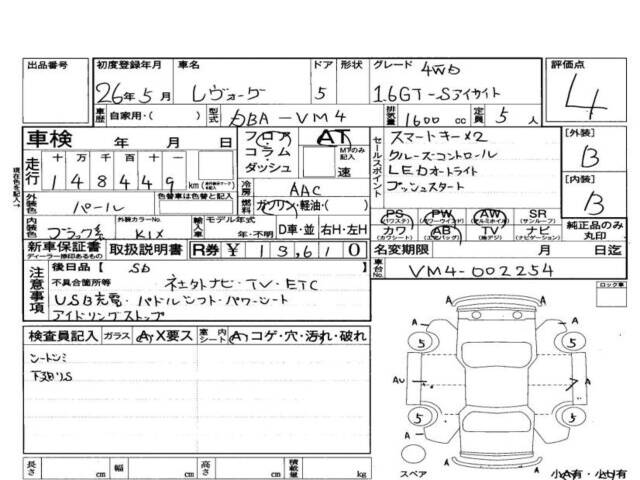 出品番号 初度登録年月 車名 ドア 形状 グレード 4WD 評価点
26年5月 レヴォーグ 5 1.6GT-Sアイサイト 4
車歴 自家用・( ) 型式 DBA-VM4 排気量 1600 cc 定員 5 人
車検 年 月 日 フロア AT セールスポイント スマートキー×2 [外装]
走行 十万 万 千 百 十 一 コラム MTのみ記入 クルーズコントロール B
148449 km ダッシュ 速 LEDオートライト [内装]
冷房 AAC プッシュスタート B
外装色 パール 色替車は色替と記入 燃料 ガソリン・軽油・( ) PS PW AW SR 純正品のみ丸印
(パワステ) (パワーウインド) (アルミホイル) (サンルーフ)
内装色 ブラック系 外装カラーNo. K1X 輸入車 モデル年式 年・不明 D車・並 右H・左H カワ AB TV ナビ
(カワシート) (エアバッグ) (ナビゲーション)
新車保証書 取扱説明書 R券 ¥ 13,610 名変期限 月 日迄
ディーラー捺印あるもの
注意事項 後日品 [ SD ] 車台No. VM4-002254
不具合箇所等 ネクストナビ・TV・ETC ロック車
USB充電・パドルシフト・パワーシート
アイドリングストップ
検査員記入 ガラス A X要ス 室内シート A コゲ・穴・汚れ・破れ
シートシミ
下部リS
A A
5 5
A A
AU A
A A
5 5
A A
スペア 小A有・小U有
長さ cm 幅 cm 高さ cm 積載量 kg
現在色を記入→